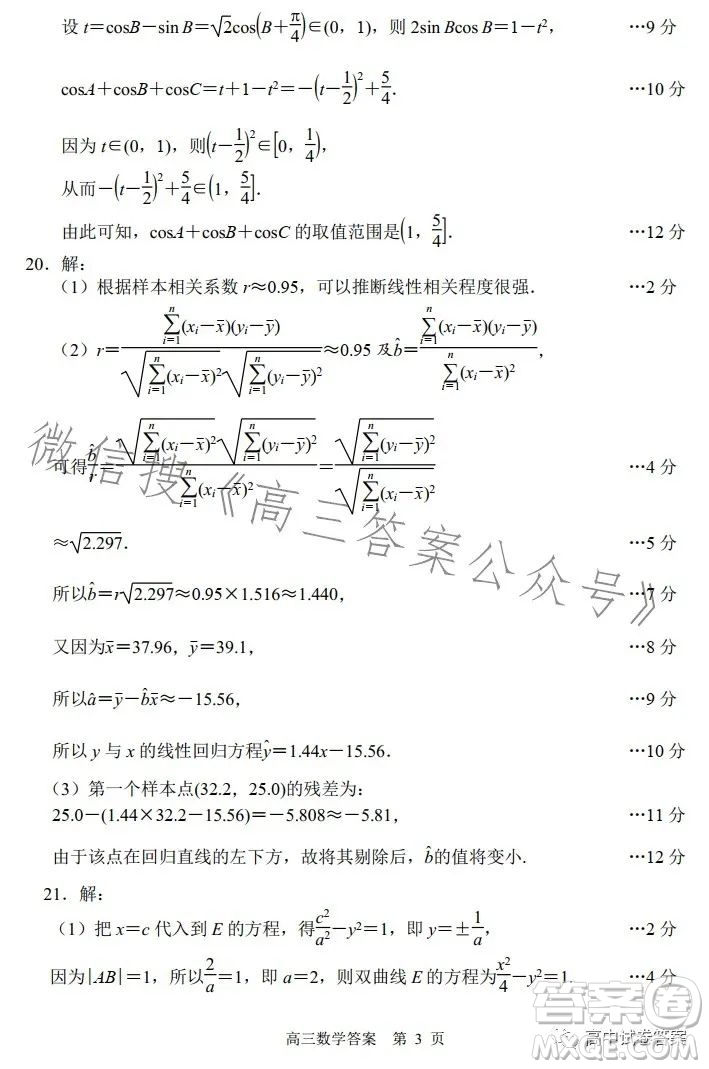 设 t＝cosB－sin B＝√2cos(B＋π/4)∈(0，1)，则 2sin Bcos B＝1－t²， …9 分
cosA＋cosB＋cosC＝t＋1－t²＝－(t－1/2)²＋5/4． …10 分
因为 t∈(0，1)，则(t－1/2)²∈[0，1/4)，
从而－(t－1/2)²＋5/4∈(1，5/4]．
由此可知，cosA＋cosB＋cosC 的取值范围是(1，5/4]． …12 分
20．解：
（1）根据样本相关系数 r≈0.95，可以推断线性相关程度很强． …2 分
（2）r＝∑ⁿᵢ₌₁(xᵢ－x̄)(yᵢ－ȳ)/(√(∑ⁿᵢ₌₁(xᵢ－x̄)²)√(∑ⁿᵢ₌₁(yᵢ－ȳ)²))≈0.95 及b̂＝∑ⁿᵢ₌₁(xᵢ－x̄)(yᵢ－ȳ)/∑ⁿᵢ₌₁(xᵢ－x̄)²，
可得b̂/r＝√(∑ⁿᵢ₌₁(xᵢ－x̄)²)√(∑ⁿᵢ₌₁(yᵢ－ȳ)²)/∑ⁿᵢ₌₁(xᵢ－x̄)²＝√(∑ⁿᵢ₌₁(yᵢ－ȳ)²)/√(∑ⁿᵢ₌₁(xᵢ－x̄)²) …4 分
≈√2.297． …5 分
所以b̂＝r√2.297≈0.95×1.516≈1.440， …7 分
又因为x̄＝37.96，ȳ＝39.1， …8 分
所以â＝ȳ－b̂x̄≈－15.56， …9 分
所以 y 与 x 的线性回归方程ŷ＝1.44x－15.56． …10 分
（3）第一个样本点(32.2，25.0)的残差为：
25.0－(1.44×32.2－15.56)＝－5.808≈－5.81， …11 分
由于该点在回归直线的左下方，故将其剔除后，b̂的值将变小． …12 分
21．解：
（1）把 x＝c 代入到 E 的方程，得c²/a²－y²＝1，即 y＝±1/a， …2 分
因为|AB|＝1，所以2/a＝1，即 a＝2，则双曲线 E 的方程为x²/4－y²＝1． …4 分
高三数学答案 第 3 页
微信搜《高三答案公众号》
高中试卷答案
答案圈
MXQE.COM